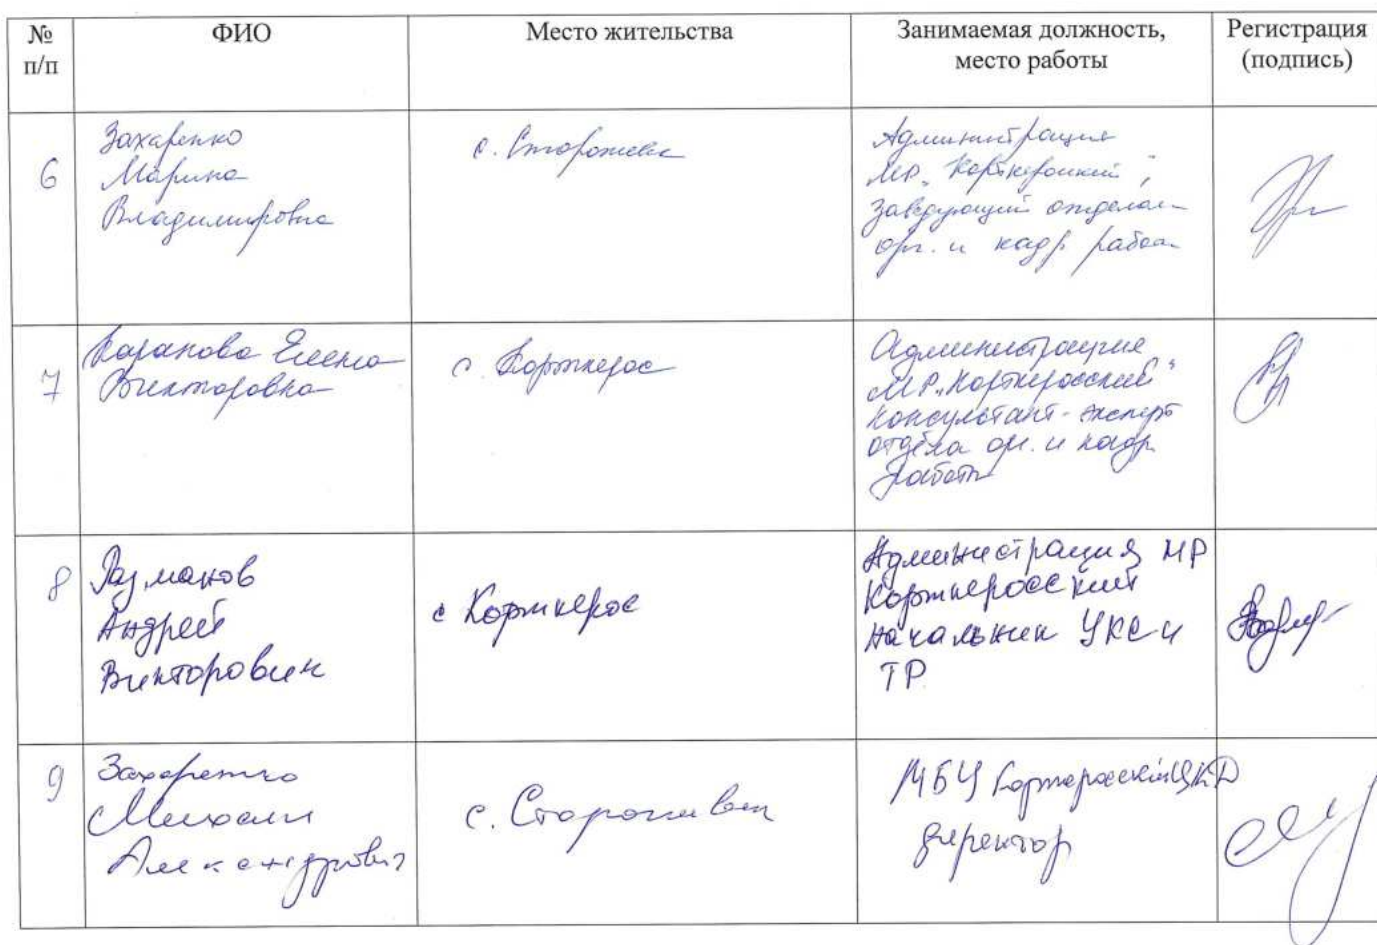 №
п/п
ФИО
Место жительства
Занимаемая должность,
место работы
Регистрация
(подпись)
6
Захаренко
Марина
Владимировна
с. Сторожевск
Администрация
МР „Корткеросский",
заведующий отделом
орг. и кадр. работы
7
Каракова Елена
Викторовна
с. Корткерос
Администрация
МР „Корткеросский"
консультант-эксперт
отдела орг. и кадр.
работы
8
Андрей
Викторович
с Корткерос
Администрация МР
Корткеросский
Начальник УКС и
ТР
9
Захаренко
Михаил
Александрович
с. Сторожевск
МБУ Корткеросский ЦКД
директор